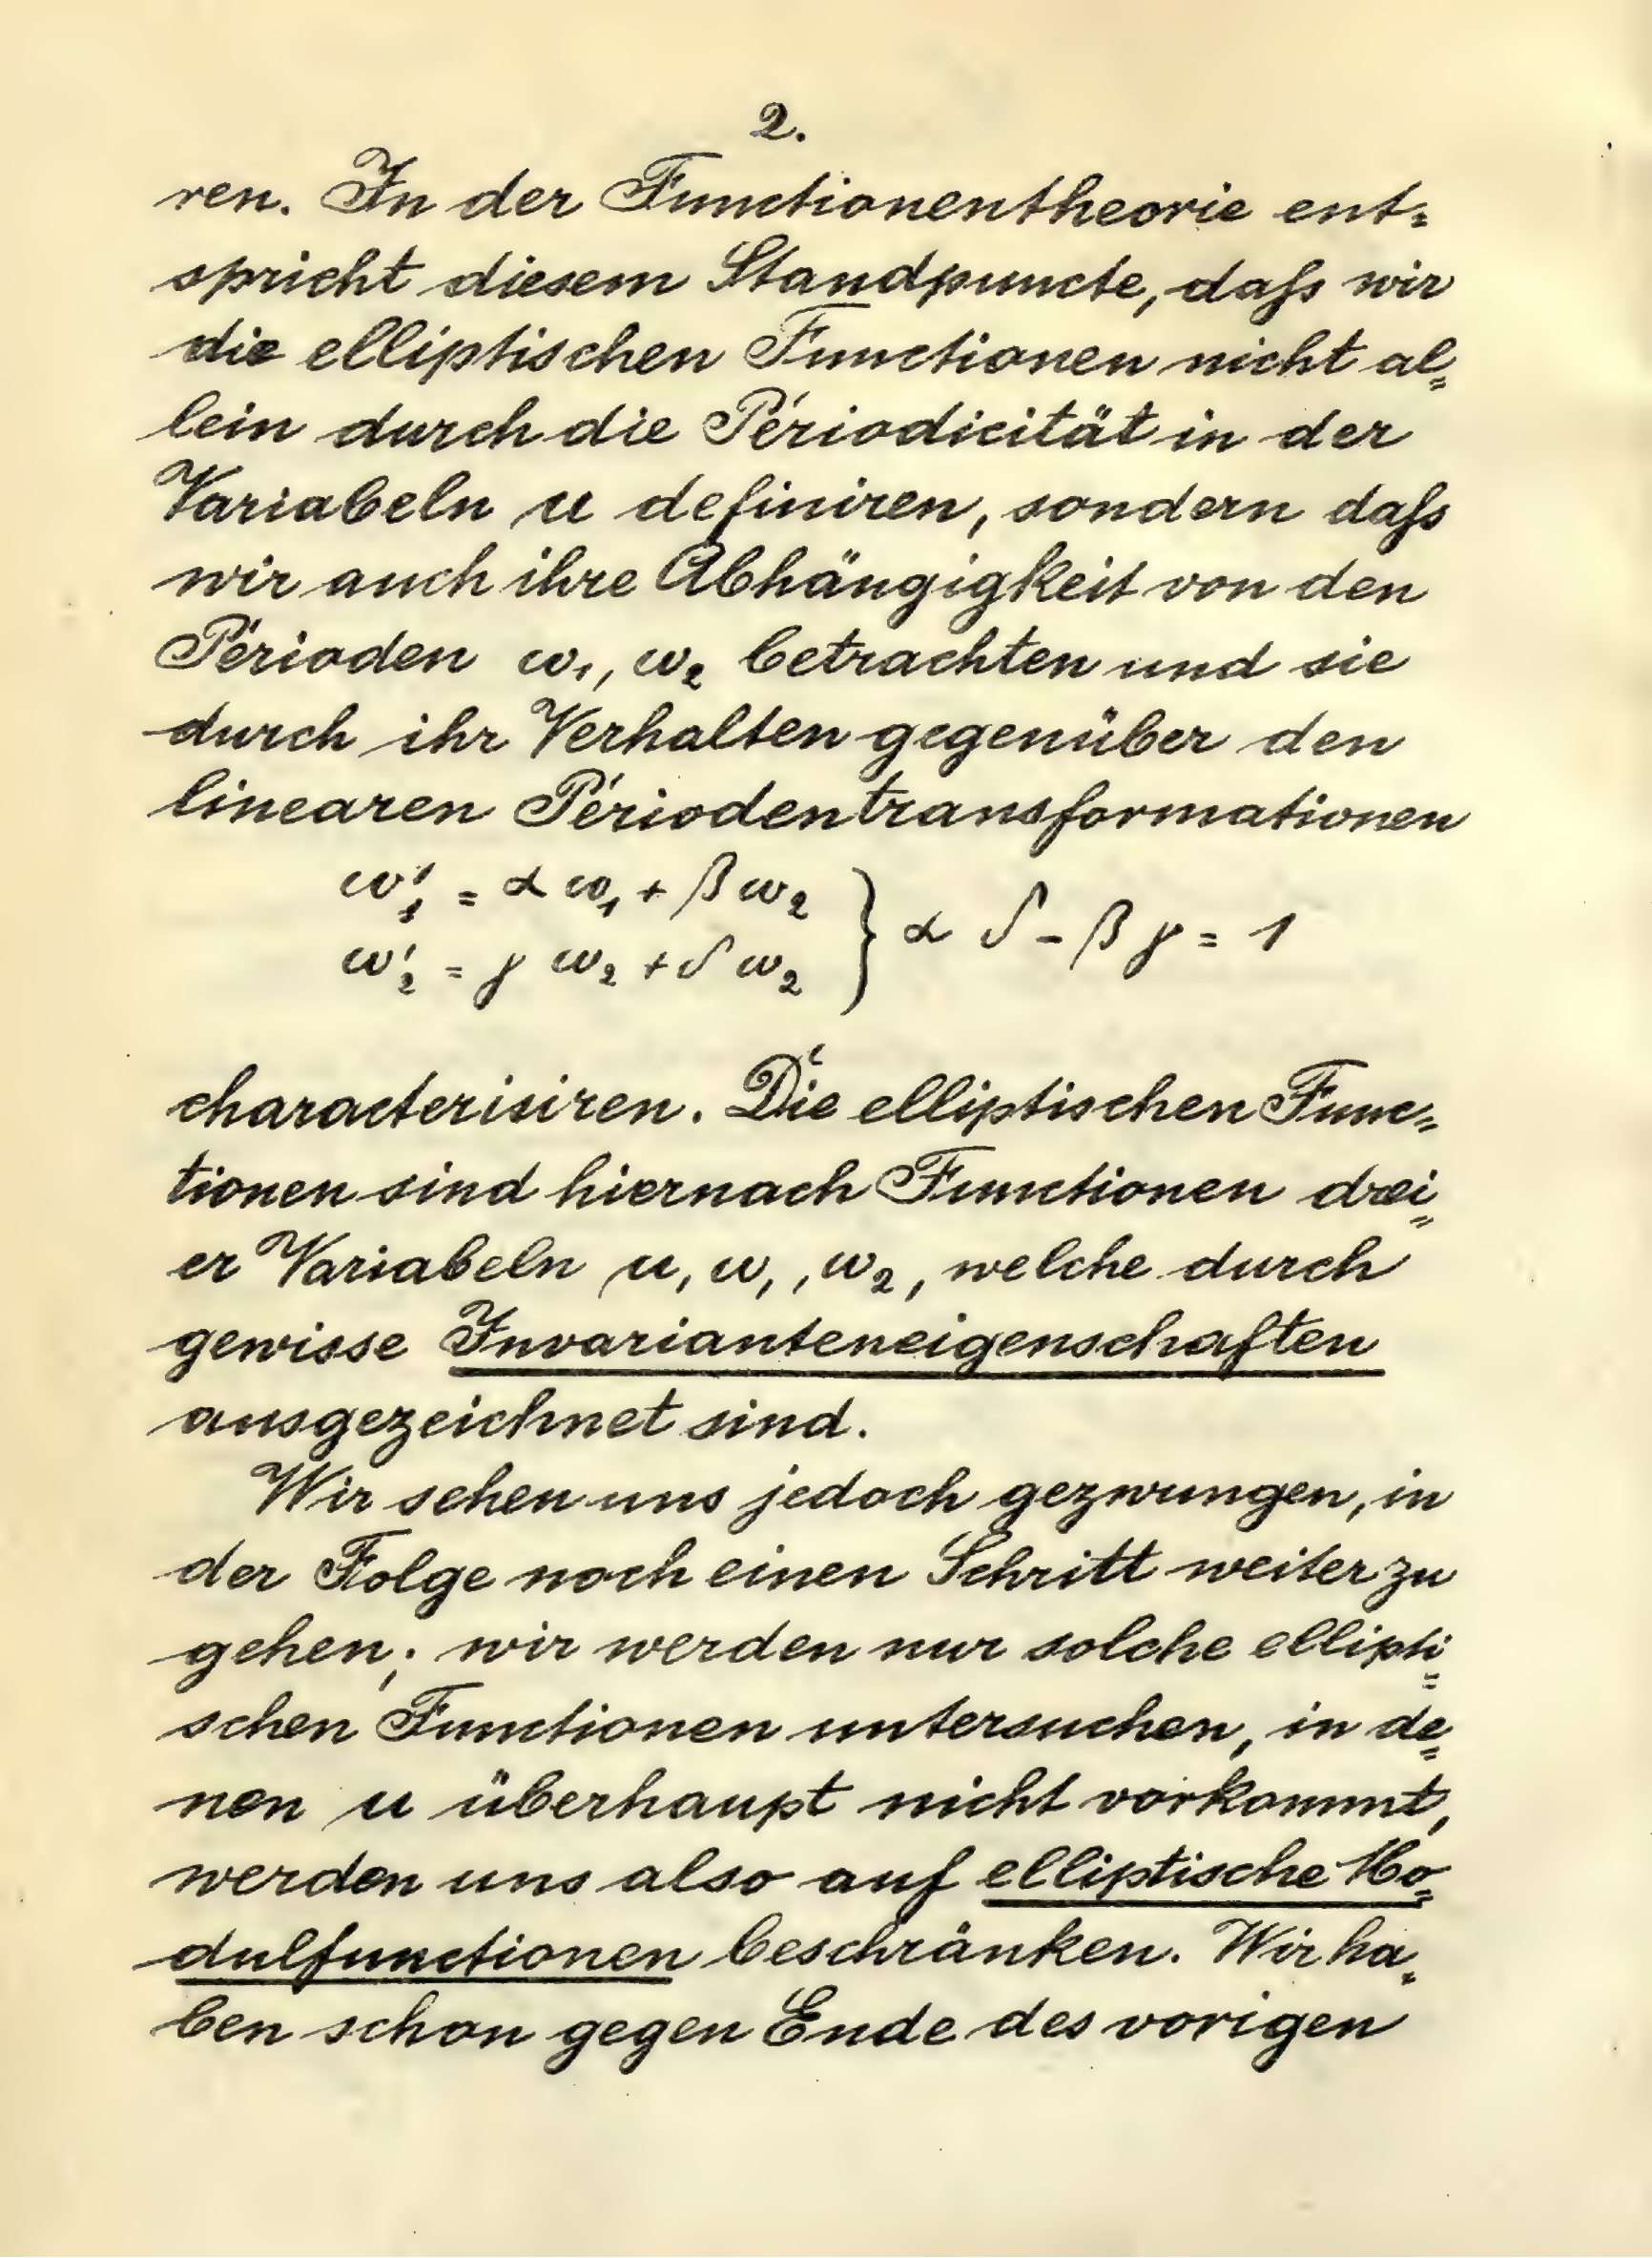 2.
ren. In der Functionentheorie ent=
spricht diesem Standpuncte, daſs wir
die elliptischen Functionen nicht al=
lein durch die Periodicität in der
Variabeln u definiren, sondern daſs
wir auch ihre Abhängigkeit von den
Perioden ω₁, ω₂ betrachten und sie
durch ihr Verhalten gegenüber den
linearen Periodentransformationen
ω'₁ = α ω₁ + β ω₂ } α δ - β γ = 1
ω'₂ = γ ω₂ + δ ω₂
characterisiren. Die elliptischen Func=
tionen sind hiernach Functionen drei=
er Variabeln u, ω₁, ω₂, welche durch
gewisse Invarianteneigenschaften
ausgezeichnet sind.
Wir sehen uns jedoch gezwungen, in
der Folge noch einen Schritt weiter zu
gehen; wir werden nur solche ellipti=
schen Functionen untersuchen, in de=
nen u überhaupt nicht vorkommt,
werden uns also auf elliptische Mo=
dulfunctionen beschränken. Wir ha=
ben schon gegen Ende des vorigen